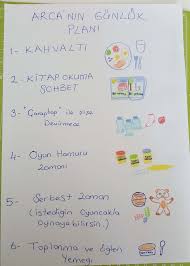 ARCA'NIN GÜNLÜK
PLANI
1- KAHVALTI
2- KİTAP OKUMA
SOHBET
3- ile şişe
Devirmece
4- Oyun Hamuru
Zamanı
5- Serbest Zaman
(istediğin oyuncakla
oynayabilirsin.)
6- Toplanma ve Öğlen
Yemeği